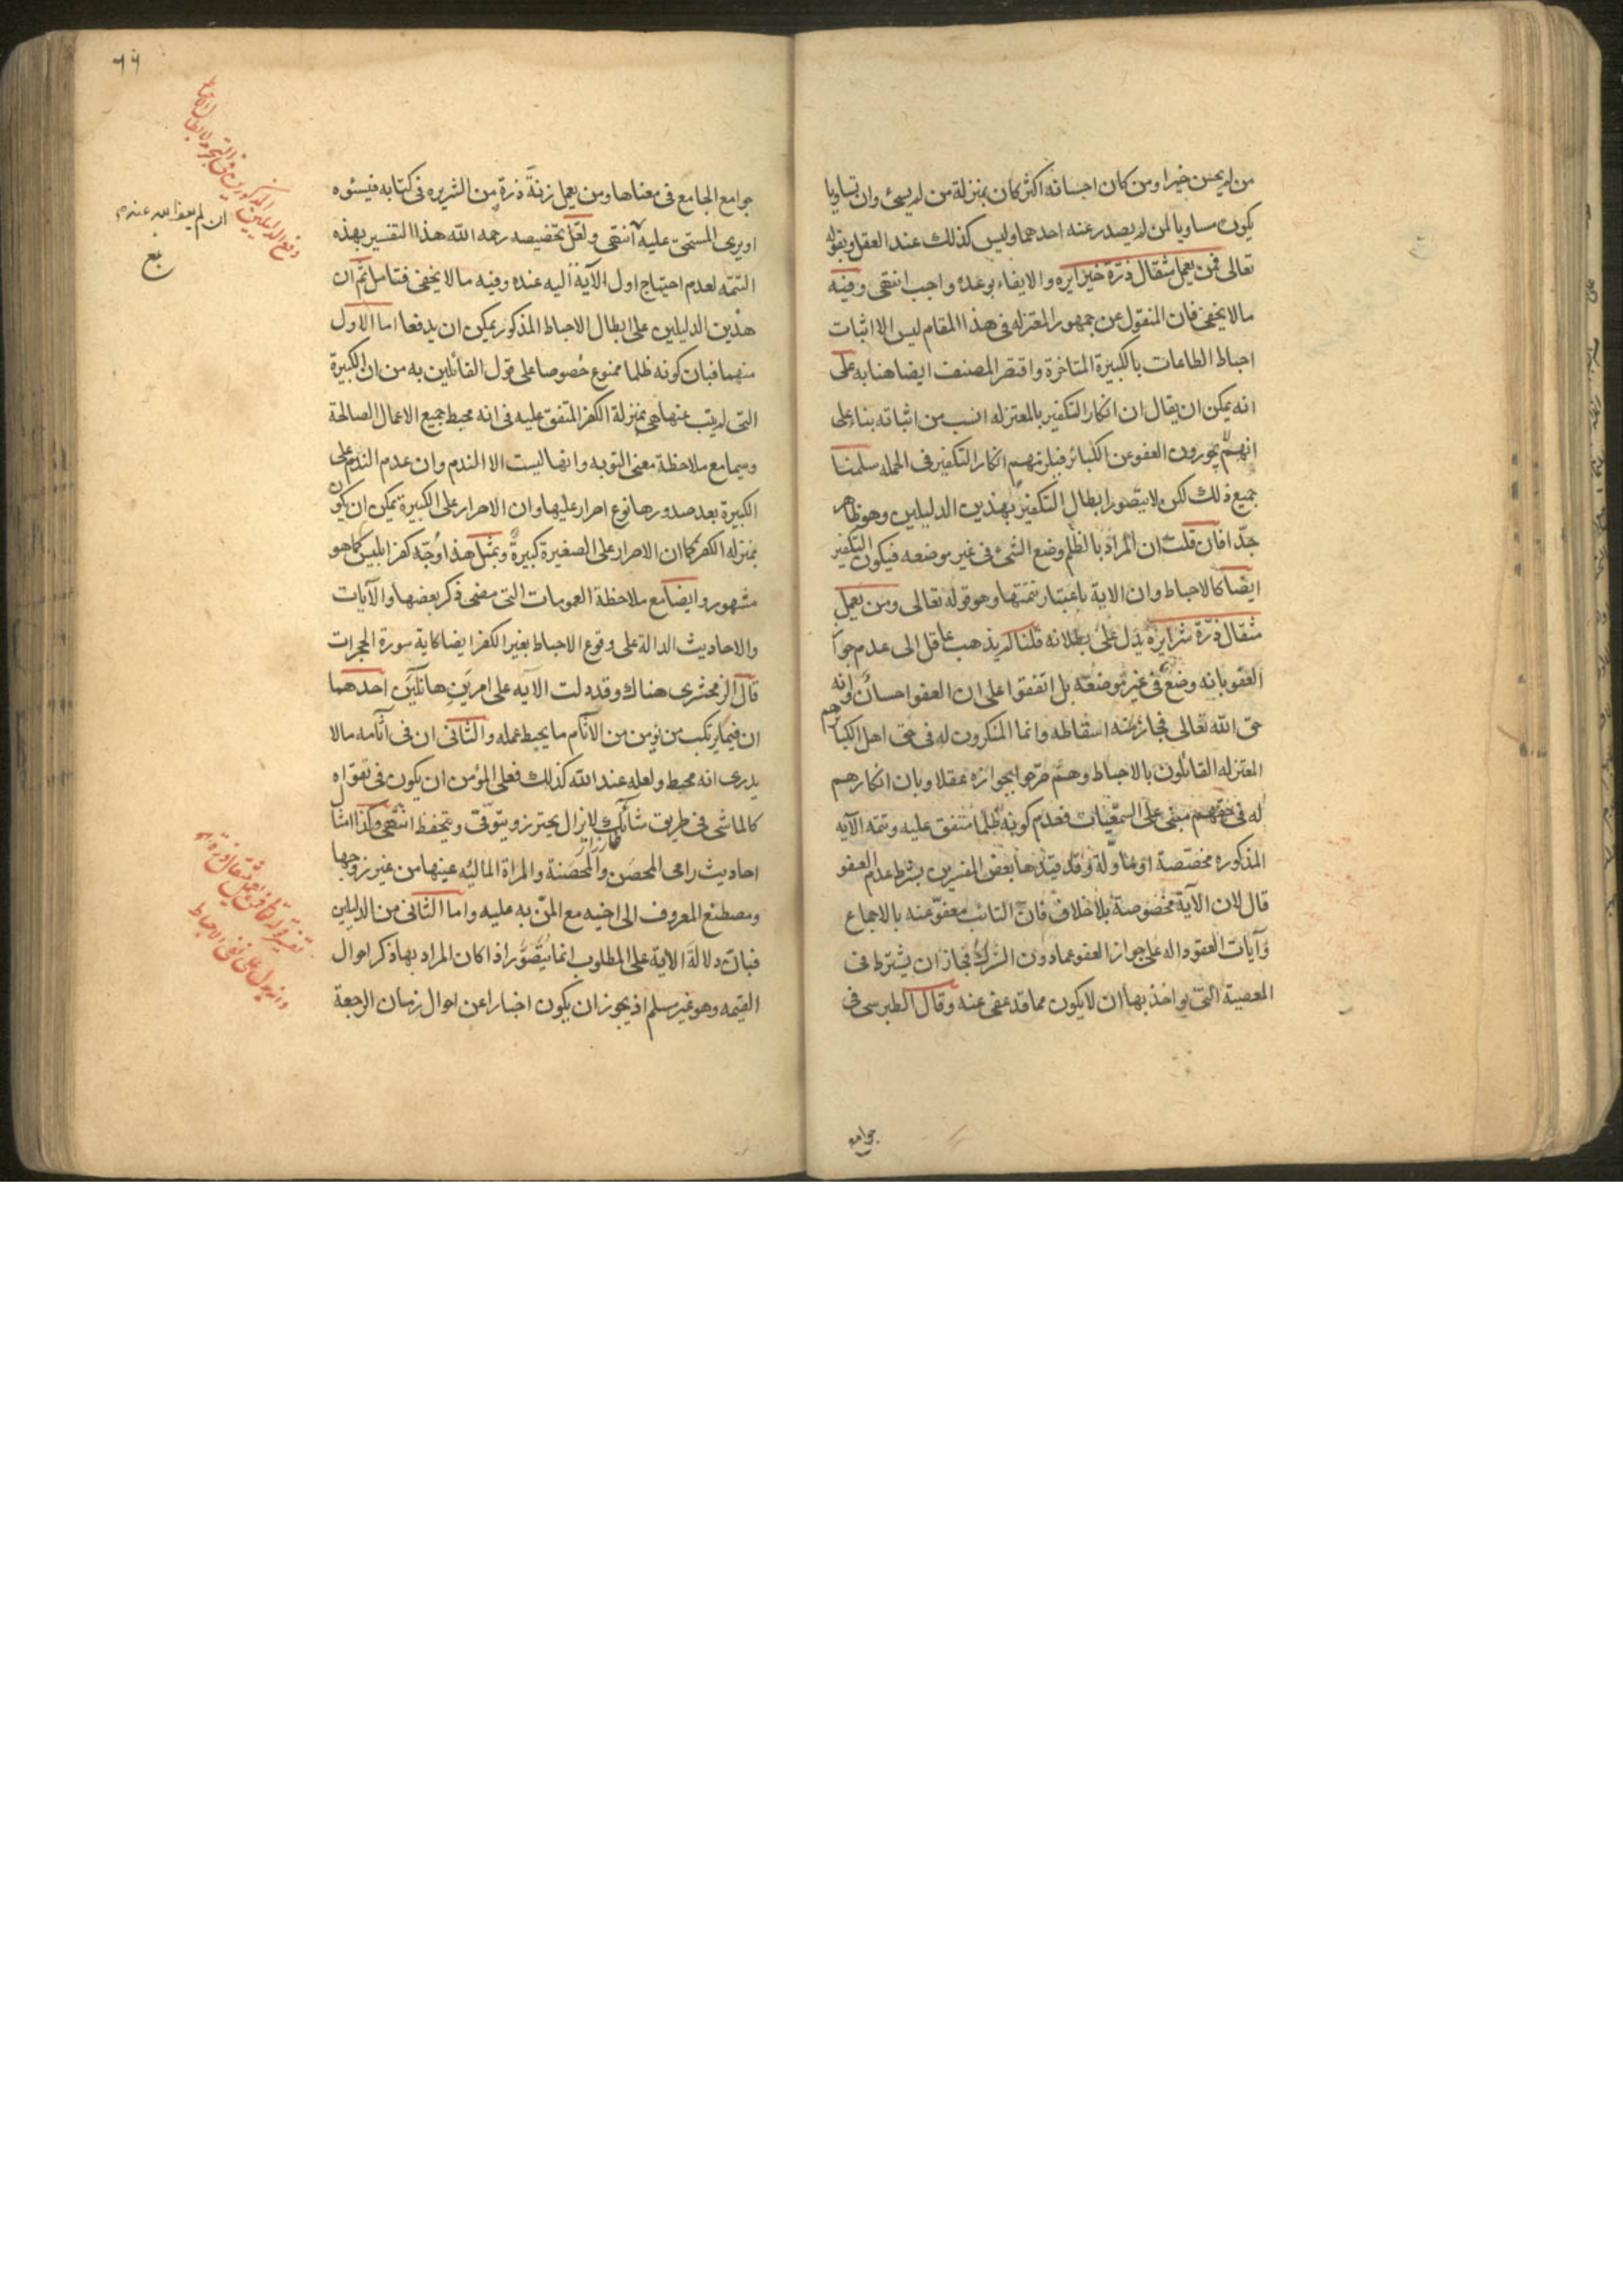 من لم يحسن خيرا ومن كان احسانه اكثر كان بمنزلة من لم يسئ وان تساويا
يكون مساويا لمن لم يصدر عنه احدهما وليس كذلك عند العقل وبقوله
تعالى فمن يعمل مثقال ذرّة خيرا يره والايفاء بوعده واجب انتهى وفيه
مالا يخفى فان المنقول عن جمهور المعتزله فى هذا المقام ليس الا اثبات
احباط الطاعات بالكبيرة المتاخرة واقتصر المصنف ايضا هنا به على
انه يمكن ان يقال ان انكار التكفير بالمعتزله انسب من اثباته بناء على
انهم لا يجوزون العفو عن الكبائر فيلزمهم انكار التكفير فى الجمله سلمنا
جميع ذلك لكن لا يتصور ابطال التكفير بهذين الدليلين وهو ظاهر
جدّا فان قلت ان المراد بالظلم وضع الشئ فى غير موضعه فيكون التكفير
ايضا كالاحباط وان الاية باعتبار تتمتها وهو قوله تعالى ومن يعمل
مثقال ذرّة شرا يره يدل على بطلانه قلنا لم يذهب عاقل الى عدم جواز
العفو بانه وضع فى غير موضعه بل اتفقوا على ان العفو احسان وانه
حق الله تعالى فجاز منه اسقاطه وانما المنكرون له فى حق اهل الكبائر هم
المعتزله القائلون بالاحباط وهم صرّحوا بجوازه عقلا وبان انكارهم
له فى حقهم مبنى على السمعيات فعدم كونه ظلما متفق عليه وتتمه الآيه
المذكوره مخصّصة او مأوّلة وقد قيّدها بعض المفسرين بشرط عدم العفو
قال لان الآية مخصوصة بلا خلاف فان التائب معفوّ عنه بالاجماع
وآيات العفو داله على جواز العفو عما دون الشرك فجاز ان يشترط فى
المعصية التى يواخذ بها ان لا يكون مما قد عفى عنه وقال الطبرسى فى
جوامع
٦٦
جوامع الجامع فى معناها ومن يعمل زنةَ ذرة من الشر يره فى كتابه فيسئوه
او يرى المستحق عليه انتهى ولعل تخصيصه رحمه الله هذا التفسير بهذه
التتمه لعدم احتياج اول الآية اليه عنده وفيه مالا يخفى فتامل ثم ان
هذين الدليلين على ابطال الاحباط المذكور يمكن ان يدفعا اما الاول
منهما فبان كونه ظلما ممنوع خصوصا على قول القائلين به من ان الكبيرة
التى لم يتب عنها هى بمنزلة الكفر المتفق عليه فى انه محبط جميع الاعمال الصالحة
وسيما مع ملاحظة معنى التوبه وانها ليست الا الندم وان عدم الندم على
الكبيرة بعد صدورها نوع اصرار عليها وان الاصرار على الكبيرة يمكن ان يكون
بمنزله الكفر كما ان الاصرار على الصغيرة كبيرة وبمثل هذا وُجّه كفر ابليس كما هو
مشهور وايضا مع ملاحظة العمومات التى مضى ذكر بعضها والآيات
والاحاديث الدالة على وقوع الاحباط بغير الكفر ايضا كاية سورة الحجرات
قال الزمخشرى هناك وقد دلت الايه على امرَين هائلين احدهما
ان فيما يرتكب من يؤمن من الآثام ما يحبط عمله والثانى ان فى آثامه مالا
يدرى انه محبط ولعله عند الله كذلك فعلى المؤمن ان يكون فى تقواه
كالماشى فى طريق شائك لا يزال يحترز ويتوقّى ويتحفظ انتهى وكذا امثال
احاديث رامى المحصَن والمحصَنة والمراة المالئه عينها من غير زوجها
ومصطنع المعروف الى اخيه مع المنّ به عليه واما الثانى من الدليلين
فبان دلالة الاية على المطلوب انما يُتصّور اذا كان المراد بها ذكر احوال
القيمه وهو غير مسلم اذ يجوز ان يكون اخبارا عن احوال زمان الرجعة
دفع الدليلين المذكورين فى التجريد لابطال الاحباط
ان لم يعف الله عنده
تفسير قوله تعالى فمن يعمل مثقال ذرة
وانه يدل على نفى الاحباط